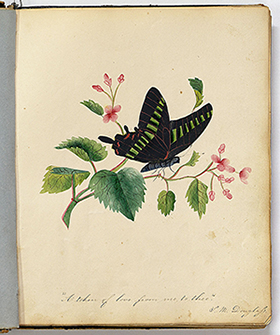 "A token of love from me to thee"
S. M. Douglass